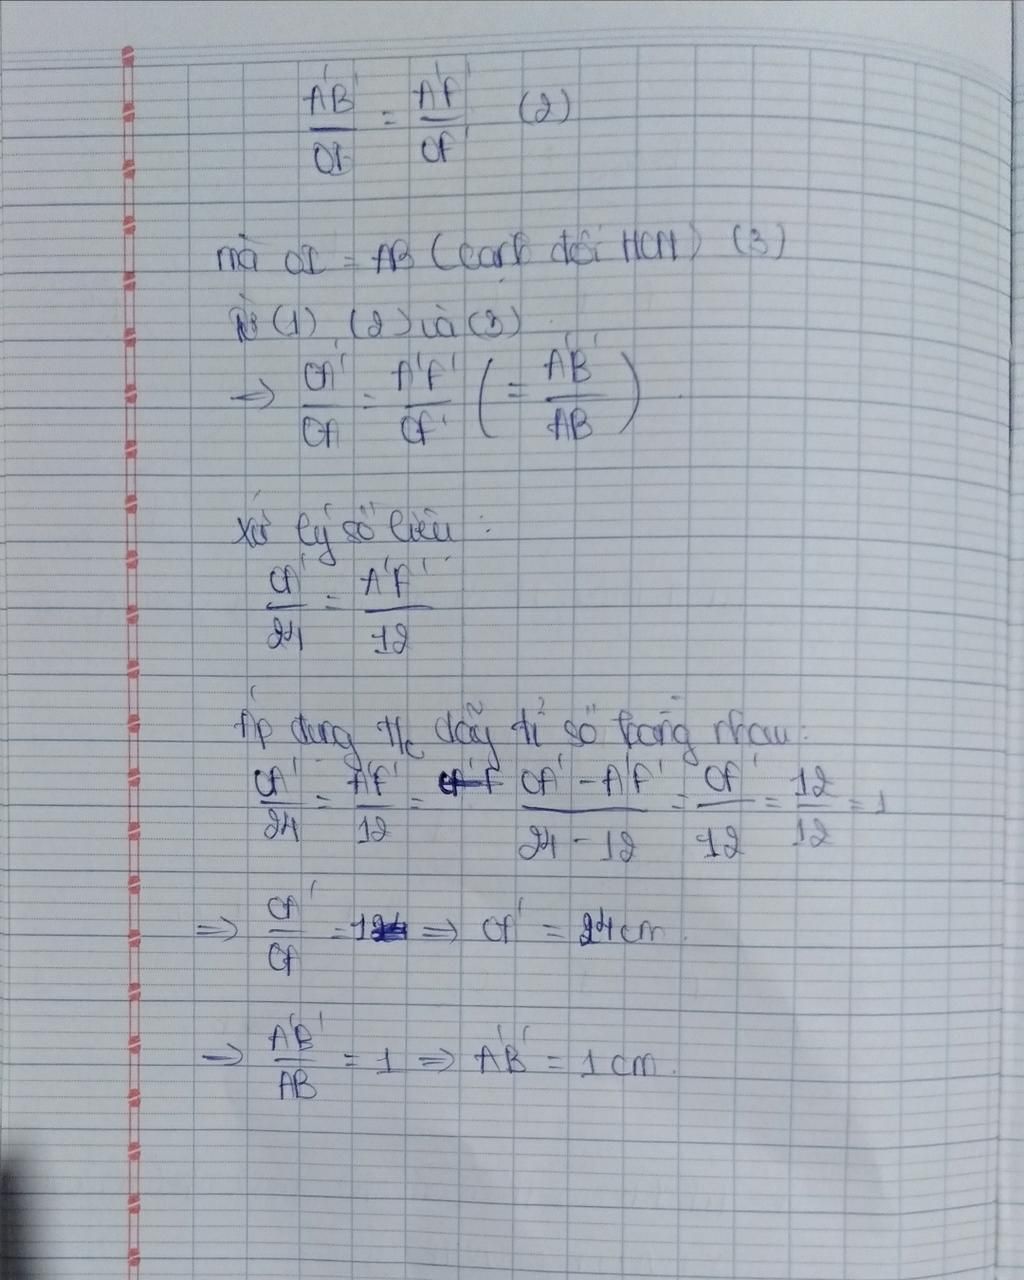 A'B'/OI = A'F'/OF' (2)
mà OI = AB (cạnh đối HCN) (3)
Từ (1), (2) và (3)
=> OA'/OA = A'F'/OF' (= A'B'/AB)
Xử lý số liệu :
OA'/24 = A'F'/12
Áp dụng t/c dãy tỉ số bằng nhau:
OA'/24 = A'F'/12 = (OA' - A'F')/(24 - 12) = OF'/12 = 12/12 = 1
=> OA'/OA = 1 => OA' = 24 cm.
=> A'B'/AB = 1 => A'B' = 1 cm.